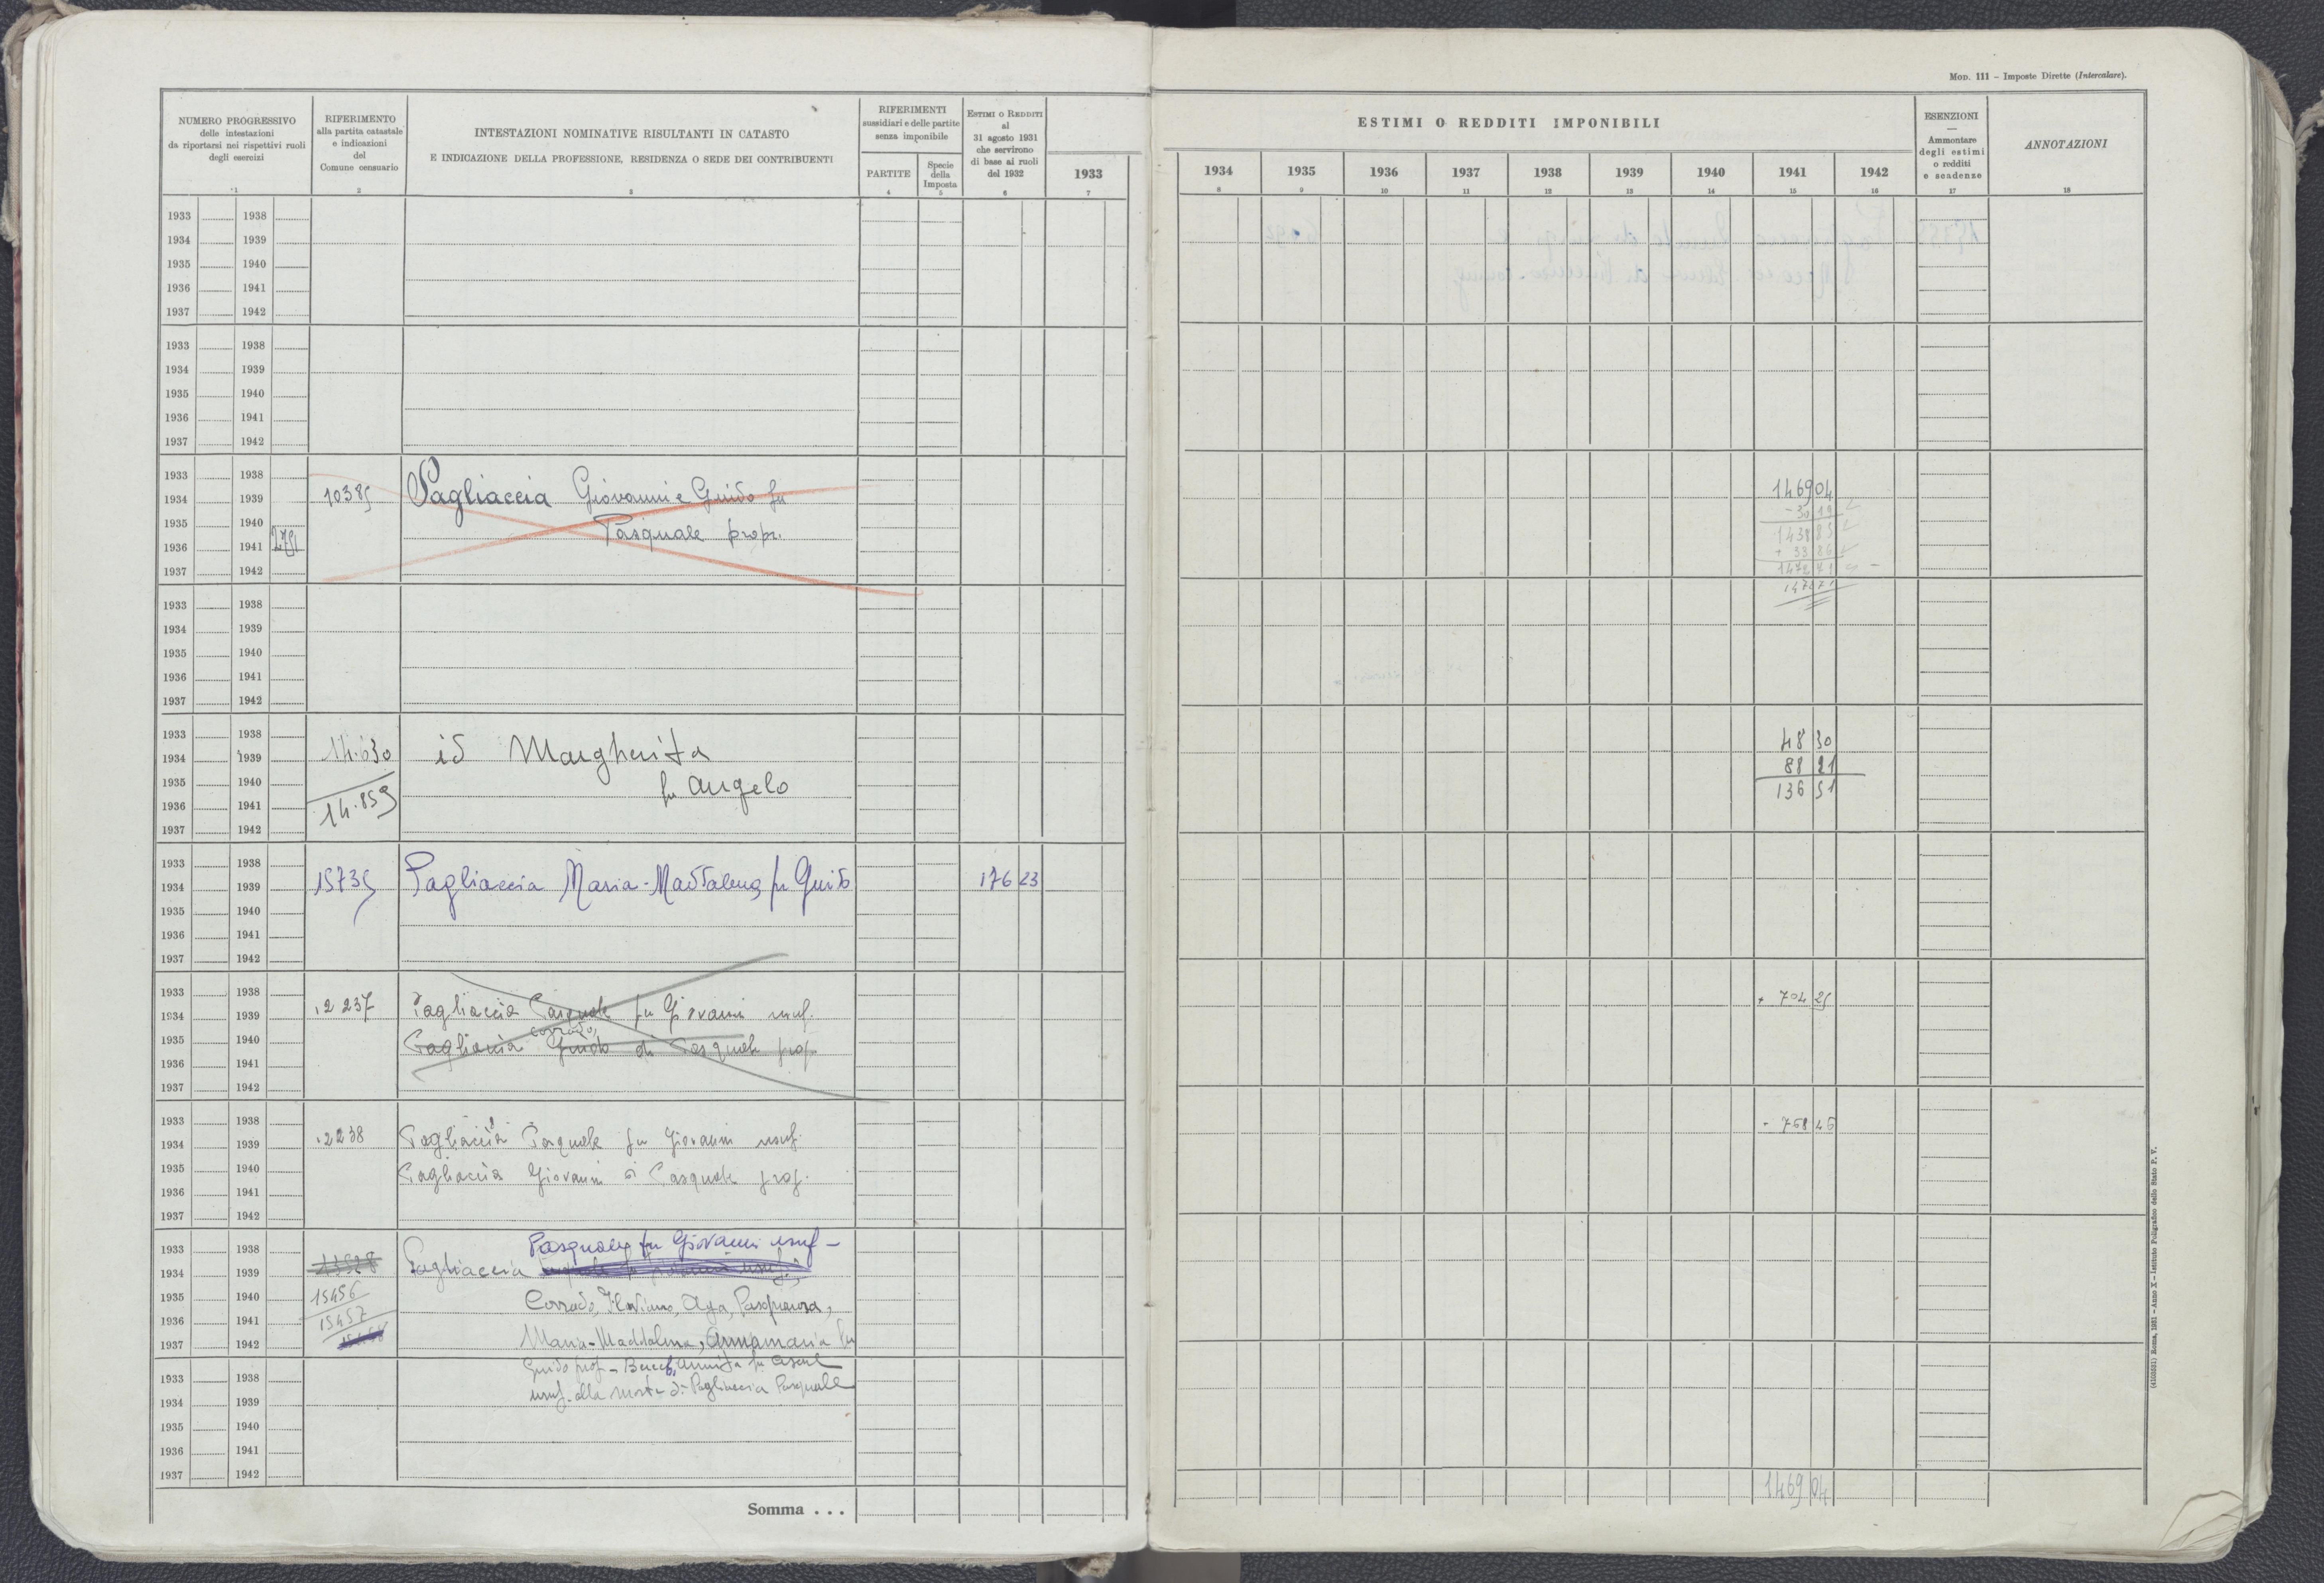 MOD. 111 – Imposte Dirette (Intercalare).
NUMERO PROGRESSIVO
delle intestazioni
da riportarsi nei rispettivi ruoli
degli esercizi
1
RIFERIMENTO
alla partita catastale
e indicazioni
del
Comune censuario
2
INTESTAZIONI NOMINATIVE RISULTANTI IN CATASTO
E INDICAZIONE DELLA PROFESSIONE, RESIDENZA O SEDE DEI CONTRIBUENTI
3
RIFERIMENTI
sussidiari e delle partite
senza imponibile
PARTITE
4
Specie
della
Imposta
5
ESTIMI O REDDITI
al
31 agosto 1931
che servirono
di base ai ruoli
del 1932
6
1933
7
ESTIMI O REDDITI IMPONIBILI
1934 1935 1936 1937 1938 1939 1940 1941 1942
8 9 10 11 12 13 14 15 16
ESENZIONI
—
Ammontare
degli estimi
o redditi
e scadenze
17
ANNOTAZIONI
18
1933 1938
1934 1939
1935 1940
1936 1941
1937 1942
1933 1938
1934 1939
1935 1940
1936 1941
1937 1942
1933 1938
1934 1939 10385 Pagliaccia Giovanni e Guido fu 1469 04
1935 1940 Pasquale propr. - 30 19
1936 1941 1438 85
+ 33 86
1937 1942 1472 71
1472 71
1933 1938
1934 1939
1935 1940
1936 1941
1937 1942
1933 1938 48 30
1934 1939 14.630 id Margherita 88 21
1935 1940 fu Angelo 136 51
1936 1941 14.859
1937 1942
1933 1938
1934 1939 15735 Pagliaccia Maria-Maddalena fu Guido 176 23
1935 1940
1936 1941
1937 1942
1933 1938
1934 1939 12237 Pagliaccia Pasquale fu Giovanni usuf. + 704 25
Corrado,
1935 1940 Pagliaccia Guido di Pasquale prop
1936 1941
1937 1942
1933 1938
1934 1939 12238 Pagliaccia Pasquale fu Giovanni usuf. - 768 46
1935 1940 Pagliaccia Giovanni di Pasquale prop.
1936 1941
1937 1942
1933 1938 Pasquale fu Giovanni usuf –
1934 1939 Pagliaccia
1935 1940 15456 Corrado, Flaviano,
1936 1941 15457
1937 1942 Maria-Maddalena, Annamaria fu
Guido prop –
1933 1938 usuf. alla morte di Pagliaccia Pasquale
1934 1939
1935 1940
1936 1941
1937 1942
1469 04
Somma . . .
(4103631) Roma, 1931 – Anno X – Istituto Poligrafico dello Stato P. V.